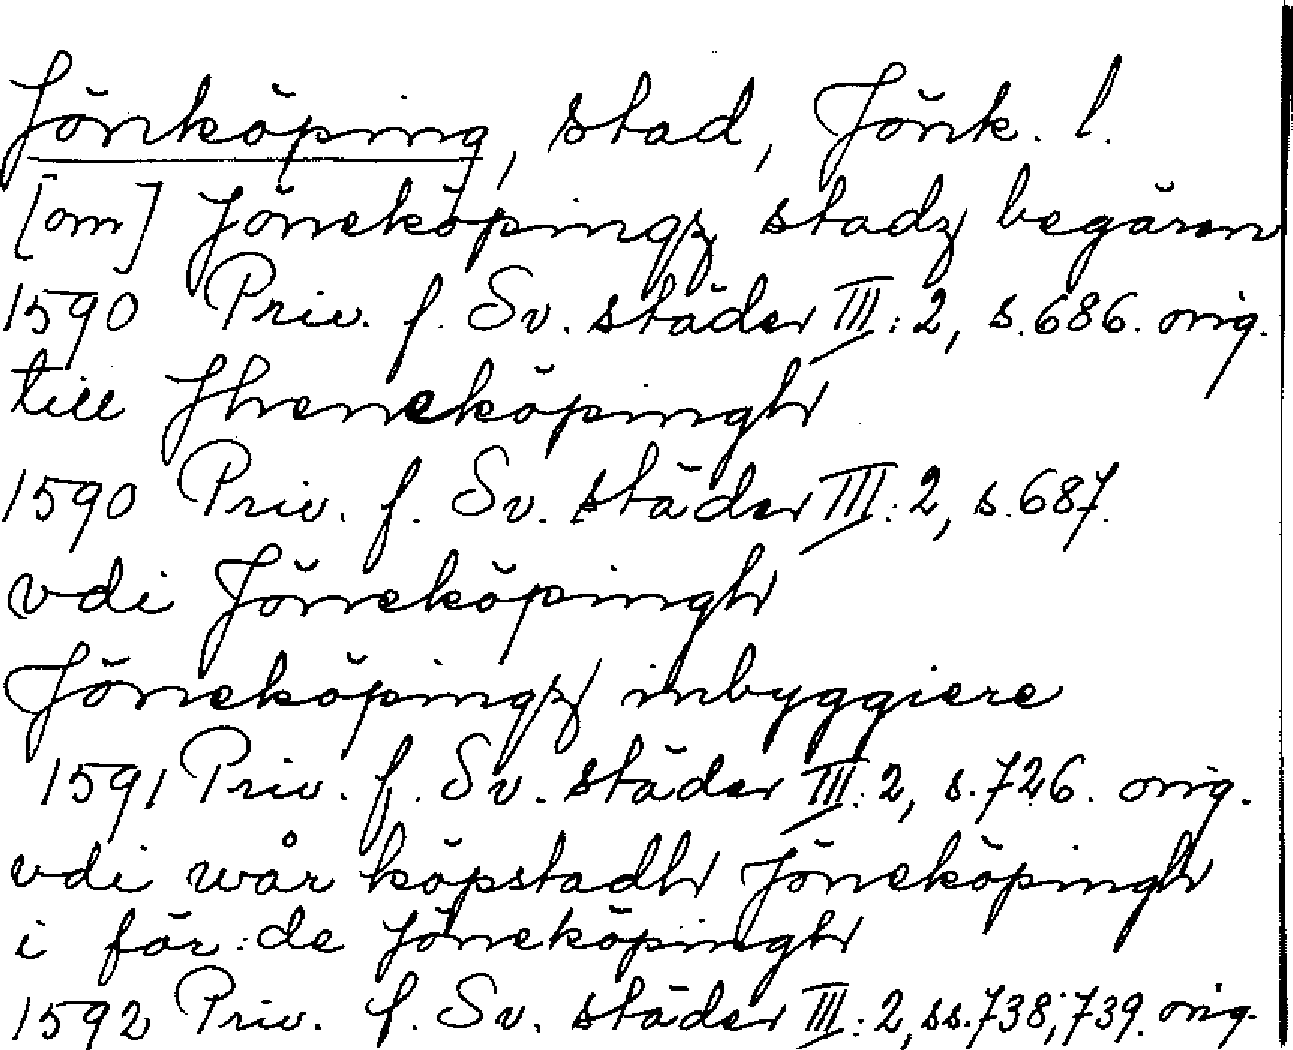 Jönköping, stad, Jönk. l.
[om] Jöneköpingz stadz begären
1590 Priv. f. Sv. städer III:2, s.686. orig.
till Jheneköpingh
1590 Priv. f. Sv. städer III:2, s.687.
vdi Jöneköpingh
Jöneköpingz inbyggiere
1591 Priv. f. Sv. städer III:2, s.726. orig.
vdi wår köpstadh Jöneköpingh
i för:de Jöneköpingh
1592 Priv. f. Sv. städer III:2, ss.738; 739. orig.